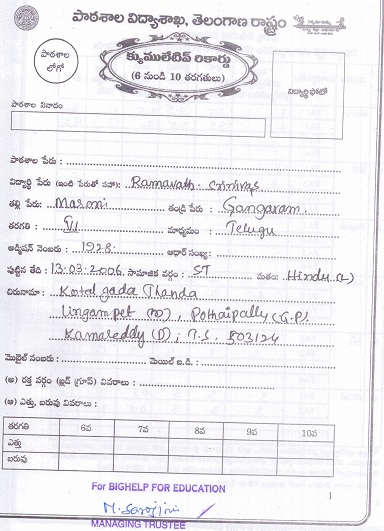 పాఠశాల విద్యాశాఖ, తెలంగాణ రాష్ట్రం
పాఠశాల లోగో
క్యుములేటివ్ రికార్డు
(6 నుండి 10 తరగతులు)
విద్యార్థి ఫోటో
పాఠశాల నినాదం
పాఠశాల పేరు :
విద్యార్థి పేరు (ఇంటి పేరుతో సహా): Ramavath Srinivas
తల్లి పేరు: Maroni తండ్రి పేరు : Gangaram
తరగతి : VI మాధ్యమం : Telugu
అడ్మిషన్ నెంబరు : 1928 ఆధార్ సంఖ్య:
పుట్టిన తేది : 13-03-2006 సామాజిక వర్గం : ST మతం: Hindu
చిరునామా : Kotal gada Thanda
Lingam pet (M), Pothaipally (G.P)
Kamareddy (D), T.S. 503124
మొబైల్ నంబరు : మెయిల్ ఐ.డి. :
(అ) రక్త వర్గం (బ్లడ్ గ్రూప్) వివరాలు :
(ఆ) ఎత్తు, బరువు వివరాలు :
తరగతి 6వ 7వ 8వ 9వ 10వ
ఎత్తు
బరువు
For BIGHELP FOR EDUCATION
1
M. Sarojini
MANAGING TRUSTEE